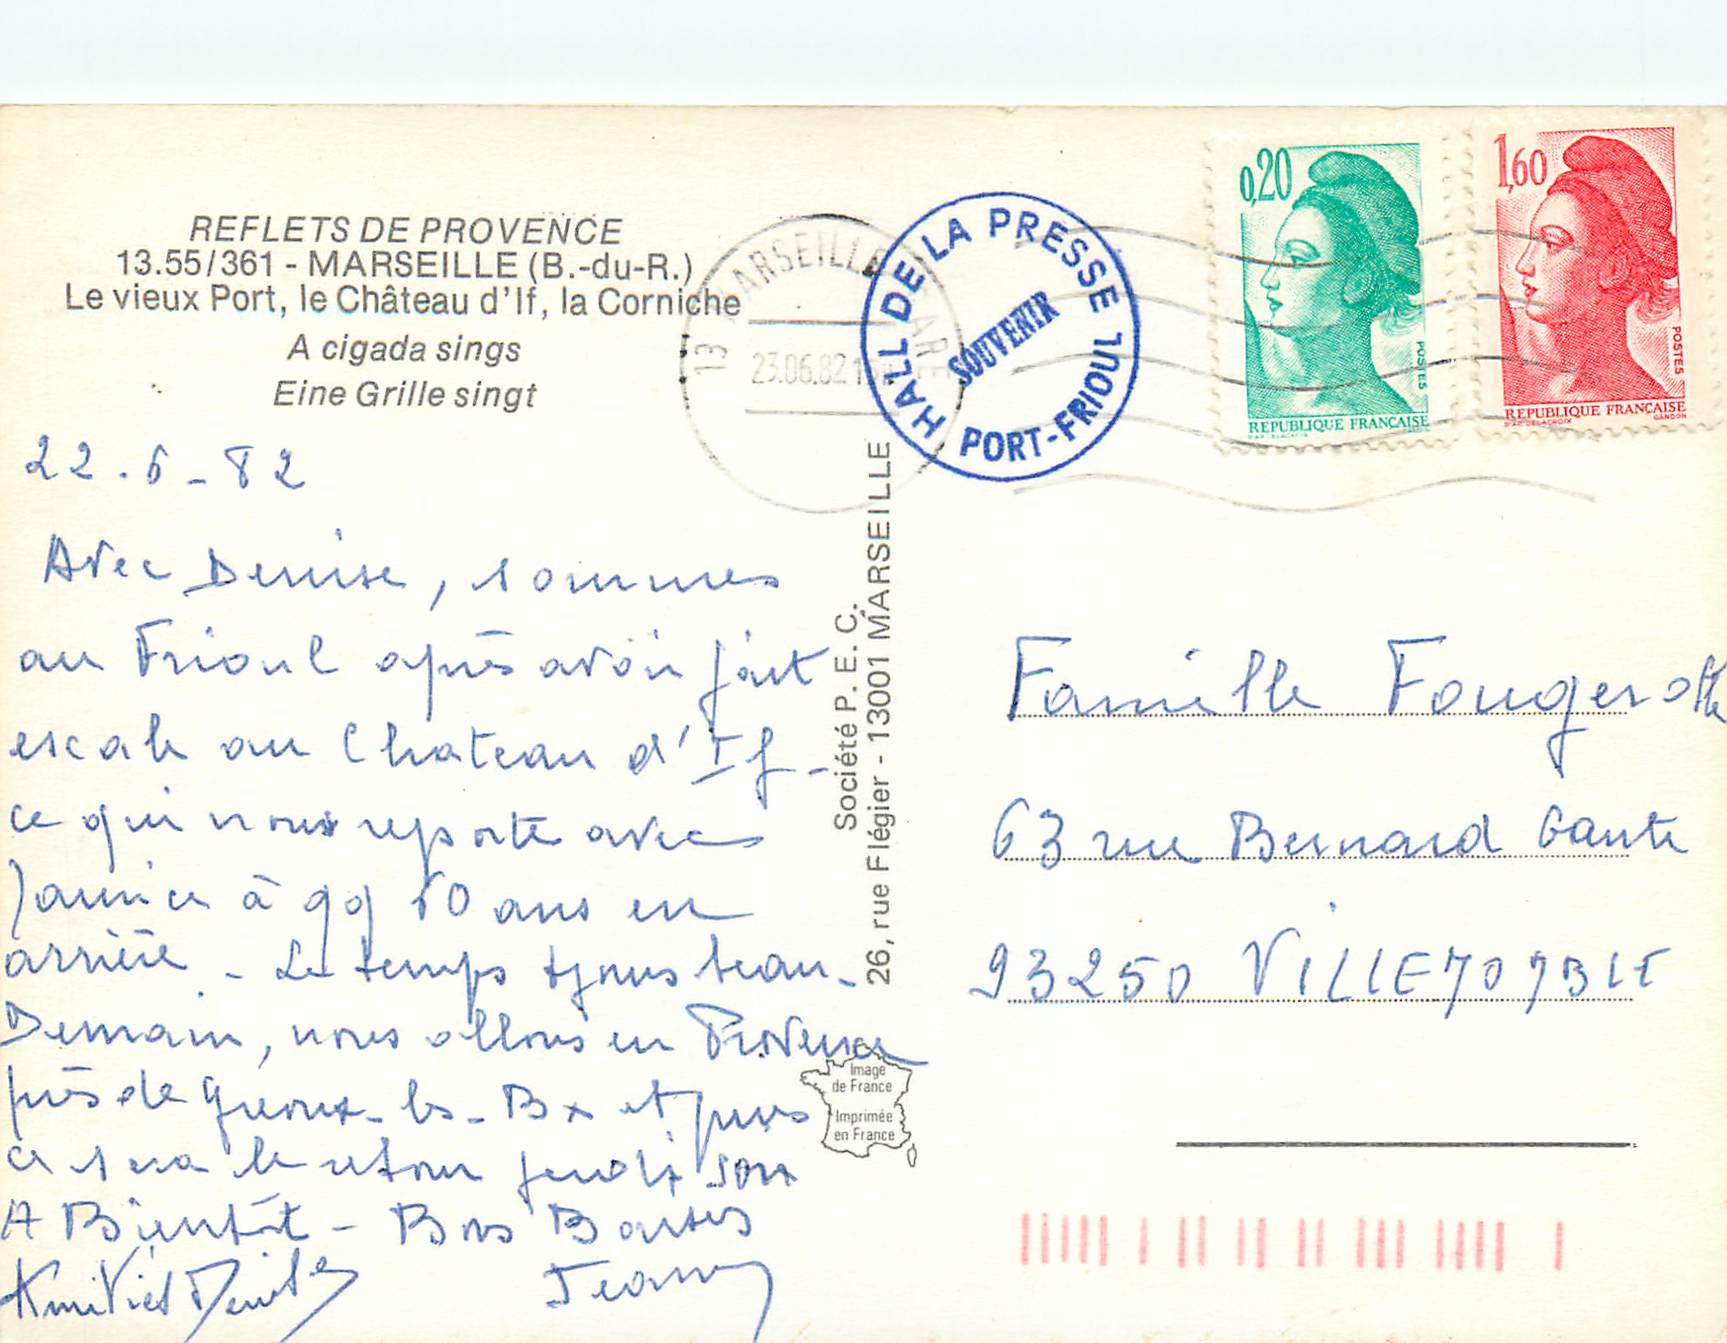 REFLETS DE PROVENCE
13.55/361 - MARSEILLE (B.-du-R.)
Le vieux Port, le Château d'If, la Corniche
A cigada sings
Eine Grille singt
22.6-82
Avec Denise, sommes
au Frioul après avoir fait
escale au Chateau d'If -
ce qui nous reporte avec
Janine à qq 10 ans en
arrière - Le temps tjours beau -
Demain, nous allons en Provence
près de Greoux-les-Bx et puis
ce sera le retour jeudi soir
A Bientôt - Bons Baisers
Amitiés Denise
Jeanne
13 MARSEILLE GARE
23.06.82
HALL DE LA PRESSE
SOUVENIR
PORT-FRIOUL
0,20
POSTES
REPUBLIQUE FRANÇAISE
D'AP. DELACROIX
GANDON
1,60
POSTES
REPUBLIQUE FRANÇAISE
D'AP. DELACROIX
GANDON
Société P.E.C.
26, rue Flégier - 13001 MARSEILLE
Image
de France
Imprimée
en France
Famille Fougerolle
63 rue Bernard Gante
93250 VILLEMOMBLE